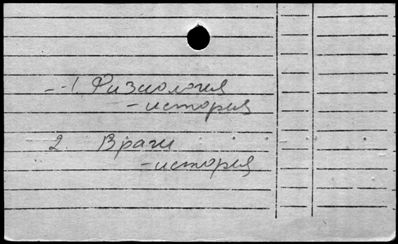 -1. Физиология
- история
2 Врачи
- история